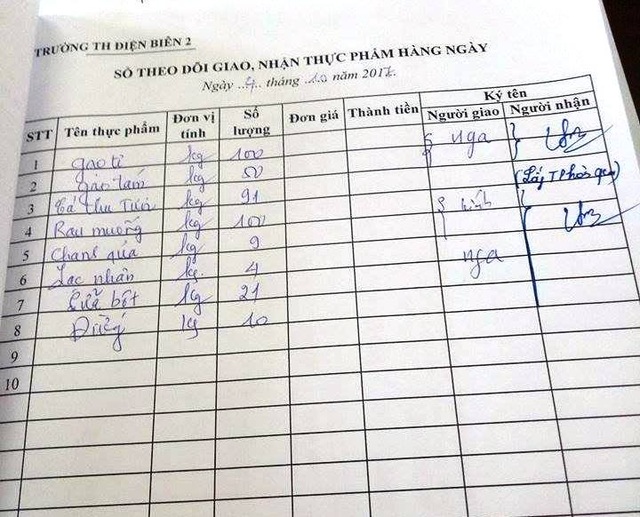 TRƯỜNG TH ĐIỆN BIÊN 2
SỔ THEO DÕI GIAO, NHẬN THỰC PHẨM HÀNG NGÀY
Ngày ..4.. tháng ..10.. năm 2017.
STT Tên thực phẩm Đơn vị tính Số lượng Đơn giá Thành tiền Ký tên
Người giao Người nhận
1 gạo tẻ kg 100 nga
2 gạo tám kg 50 (Lấy TP hôm qua)
3 kg 91
4 Rau muống kg 100
5 Chanh quả kg 9
6 Lạc nhân kg 4 nga
7 Sữa bột kg 21
8 kg 10
9
10